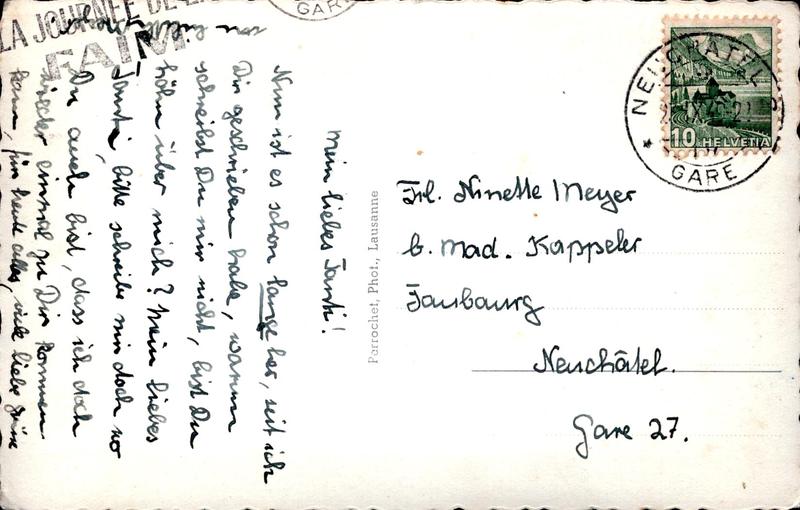 LA JOURNÉE DE LA
FAIM
GARE
NEUCHÂTEL
GARE
10 HELVETIA
Mein liebes Tanti!
Nun ist es schon lange her, seit ich
Dir geschrieben habe, warum
schreibst Du mir nicht, bist Du
höhn über mich? Mein liebes
Tanti, bitte schreibe mir doch wo
Du auch bist, dass ich doch
wieder einmal zu Dir kommen
kann, für heute alles, viele liebe Grüsse
von
Perrochet, Phot., Lausanne
Frl. Ninette Meyer
b. Mad. Kappeler
Faubourg
Neuchâtel.
Gare 27.